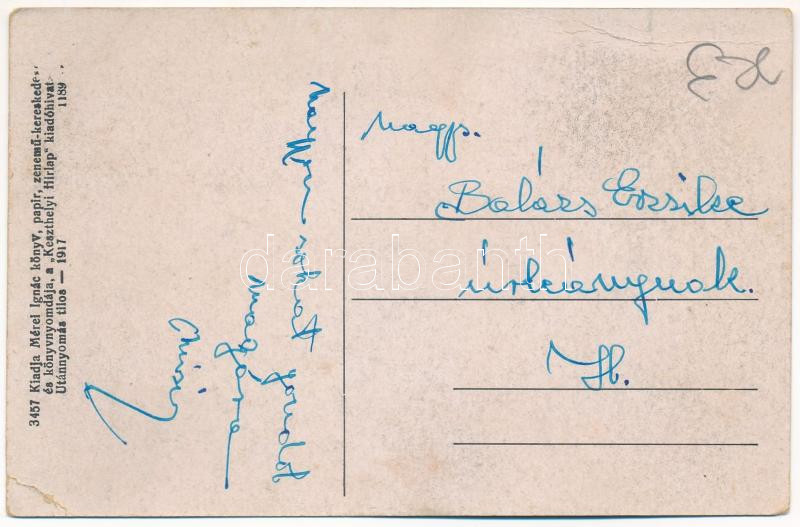 3457 Kiadja Mérei Ignác könyv, papir, zenemű-kereskedés
és könyvnyomdája, a „Keszthelyi Hirlap" kiadóhivat
Utánnyomás tilos — 1917 1189
sokat gondol
magára
nagys.
Balázs Erzsike
úrleánynak.
Hb.
darabanth